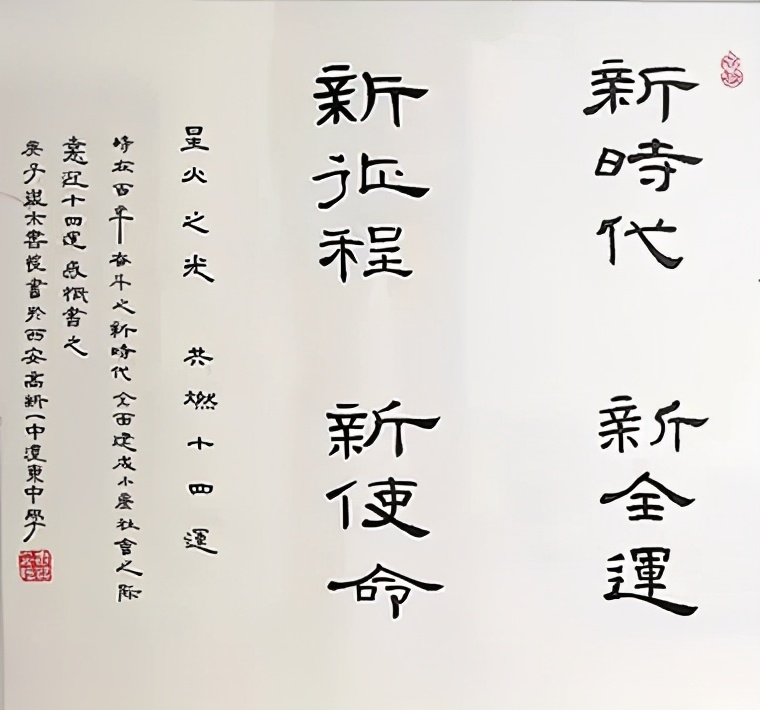 新時代 新全運
新征程 新使命
星火之光 共燃十四運
時在百年奮斗之新時代 全面建成小康社會之际
嘉迎十四運 書之
庚子 木書 書於西安高新一中 東中學